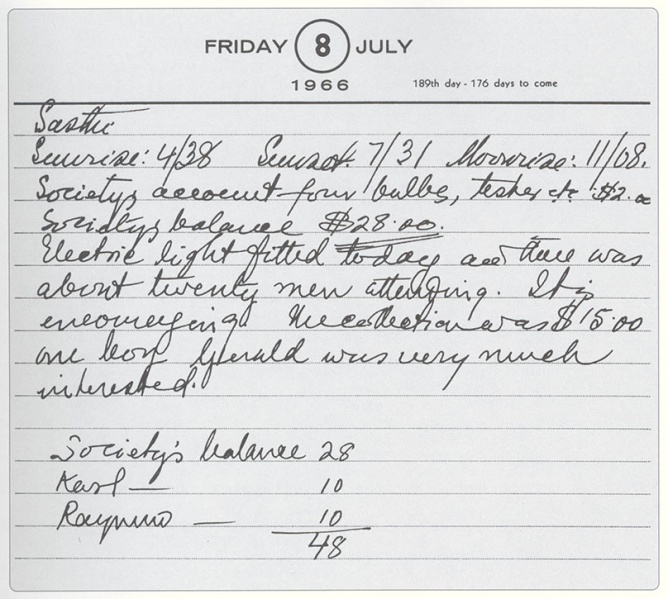 FRIDAY 8 JULY
1966
189th day - 176 days to come
Sasthi
Sunrise: 4/38 Sunset: 7/31 Moonrise: 11/08.
Society's account four bulbs, tester etc. $2.00
Society's balance $28.00.
Electric light fitted today and there was
about twenty men attending. It is
encouraging. The collection was $15.00
one boy Gerald was very much
interested.
Society's balance 28
Karl — 10
Raymund — 10
48